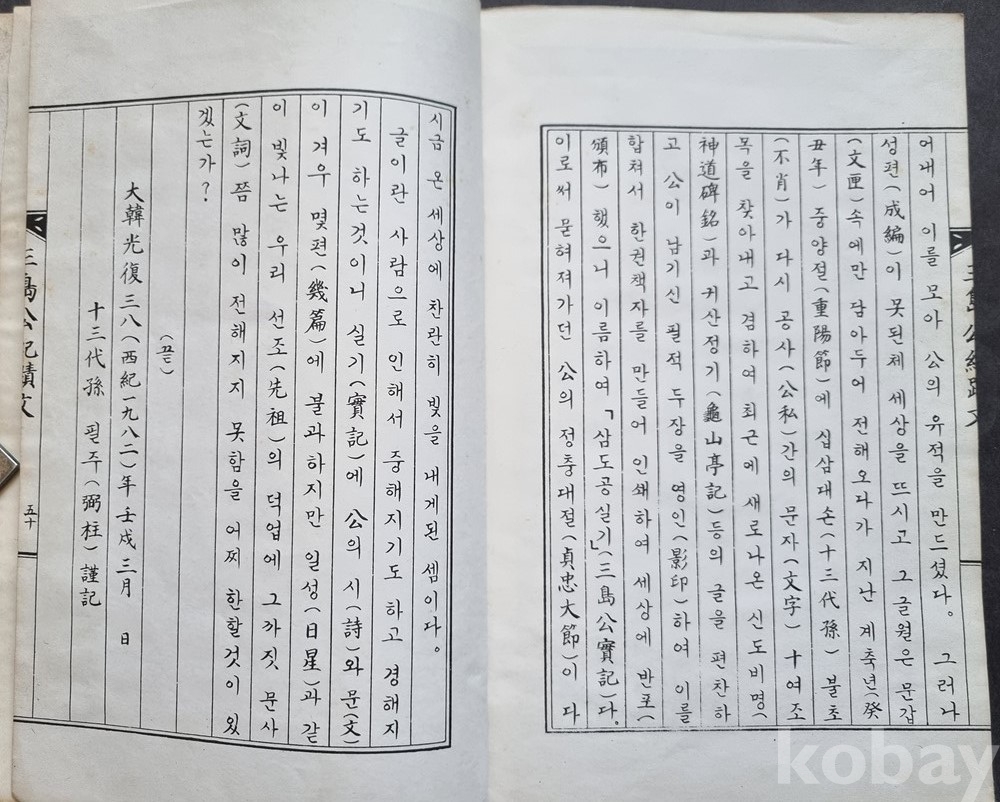 어내어 이를 모아 公의 유적을 만드셨다. 그러나
성편(成編)이 못된체 세상을 뜨시고 그 글월은 문갑
(文匣)속에만 담아두어 전해오다가 지난 계축년(癸
丑年) 중양절(重陽節)에 십삼대손(十三代孫) 불초
(不肖)가 다시 공사(公私)간의 문자(文字) 十여조
목을 찾아내고 겸하여 최근에 새로나온 신도비명(
神道碑銘)과 귀산정기(龜山亭記)등의 글을 편찬하
고 公이 남기신 필적 두장을 영인(影印)하여 이를
합쳐서 한권책자를 만들어 인쇄하여 세상에 반포(
頒布) 했으니 이름하여「삼도공실기」(三島公實記)다.
이로써 묻혀져가던 公의 정충대절(貞忠大節)이 다
시금 온세상에 찬란히 빛을 내게된 셈이다.
글이란 사람으로 인해서 중해지기도 하고 경해지
기도 하는것이니 실기(實記)에 公의 시(詩)와 문(文)
이 겨우 몇편(幾篇)에 불과하지만 일성(日星)과 같
이 빛나는 우리 선조(先祖)의 덕업에 그까짓 문사
(文詞)쯤 많이 전해지지 못함을 어찌 한할것이 있
겠는가?
(끝)
大韓光復三八(西紀一九八二)年壬戌三月 日
十三代孫 필주(弼柱)謹記
三島公紀蹟文
五十
kobay